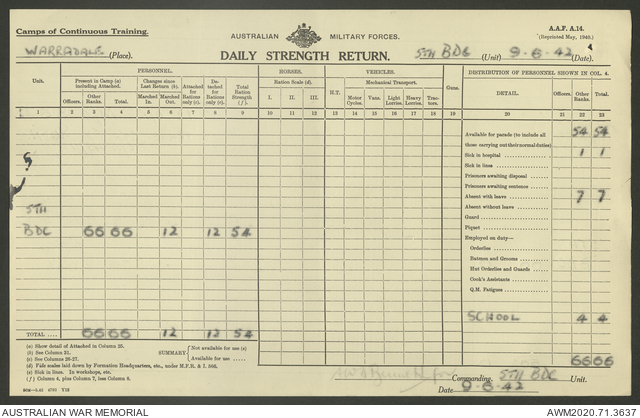 Camps of Continuous Training.
AUSTRALIAN MILITARY FORCES.
A.A.F. A.14.
(Reprinted May, 1940.)
WARRADALE (Place).
DAILY STRENGTH RETURN.
5TH BDC (Unit) 9-6-42 (Date).
PERSONNEL. HORSES. VEHICLES. DISTRIBUTION OF PERSONNEL SHOWN IN COL. 4.
Unit. Present in Camp (a) including Attached. Changes since Last Return (b). Attached for Rations only (c). Detached for Rations only (c). Total Ration Strength (f). Ration Scale (d). H.T. Mechanical Transport. Guns. DETAIL. Officers. Other Ranks. Total.
Officers. Other Ranks. Total. Marched In. Marched Out. I. II. III. Motor Cycles. Vans. Light Lorries. Heavy Lorries. Tractors.
1 2 3 4 5 6 7 8 9 10 11 12 13 14 15 16 17 18 19 20 21 22 23
Available for parade (to include all those carrying out their normal duties) 54 54
Sick in hospital 1 1
Sick in lines
Prisoners awaiting disposal
Prisoners awaiting sentence
Absent with leave 7 7
Absent without leave
5TH
Guard
BDC 66 66 12 12 54
Piquet
Employed on duty—
Orderlies
Batmen and Grooms
Hut Orderlies and Guards
Cook's Assistants
Q.M. Fatigues
SCHOOL 4 4
TOTAL 66 66 12 12 54
66 66
(a) Show detail of Attached in Column 25.
(b) See Column 21.
(c) See Columns 26-27.
(d) Vide scales laid down by Formation Headquarters, etc., under M.F.R. & I. 566.
(e) Sick in lines. In workshops, etc.
(f) Column 4, plus Column 7, less Column 8.
SUMMARY
Not available for use (e)
Available for use
Commanding 5TH BDC Unit.
Date 9-6-42
AUSTRALIAN WAR MEMORIAL
AWM2020.71.3637